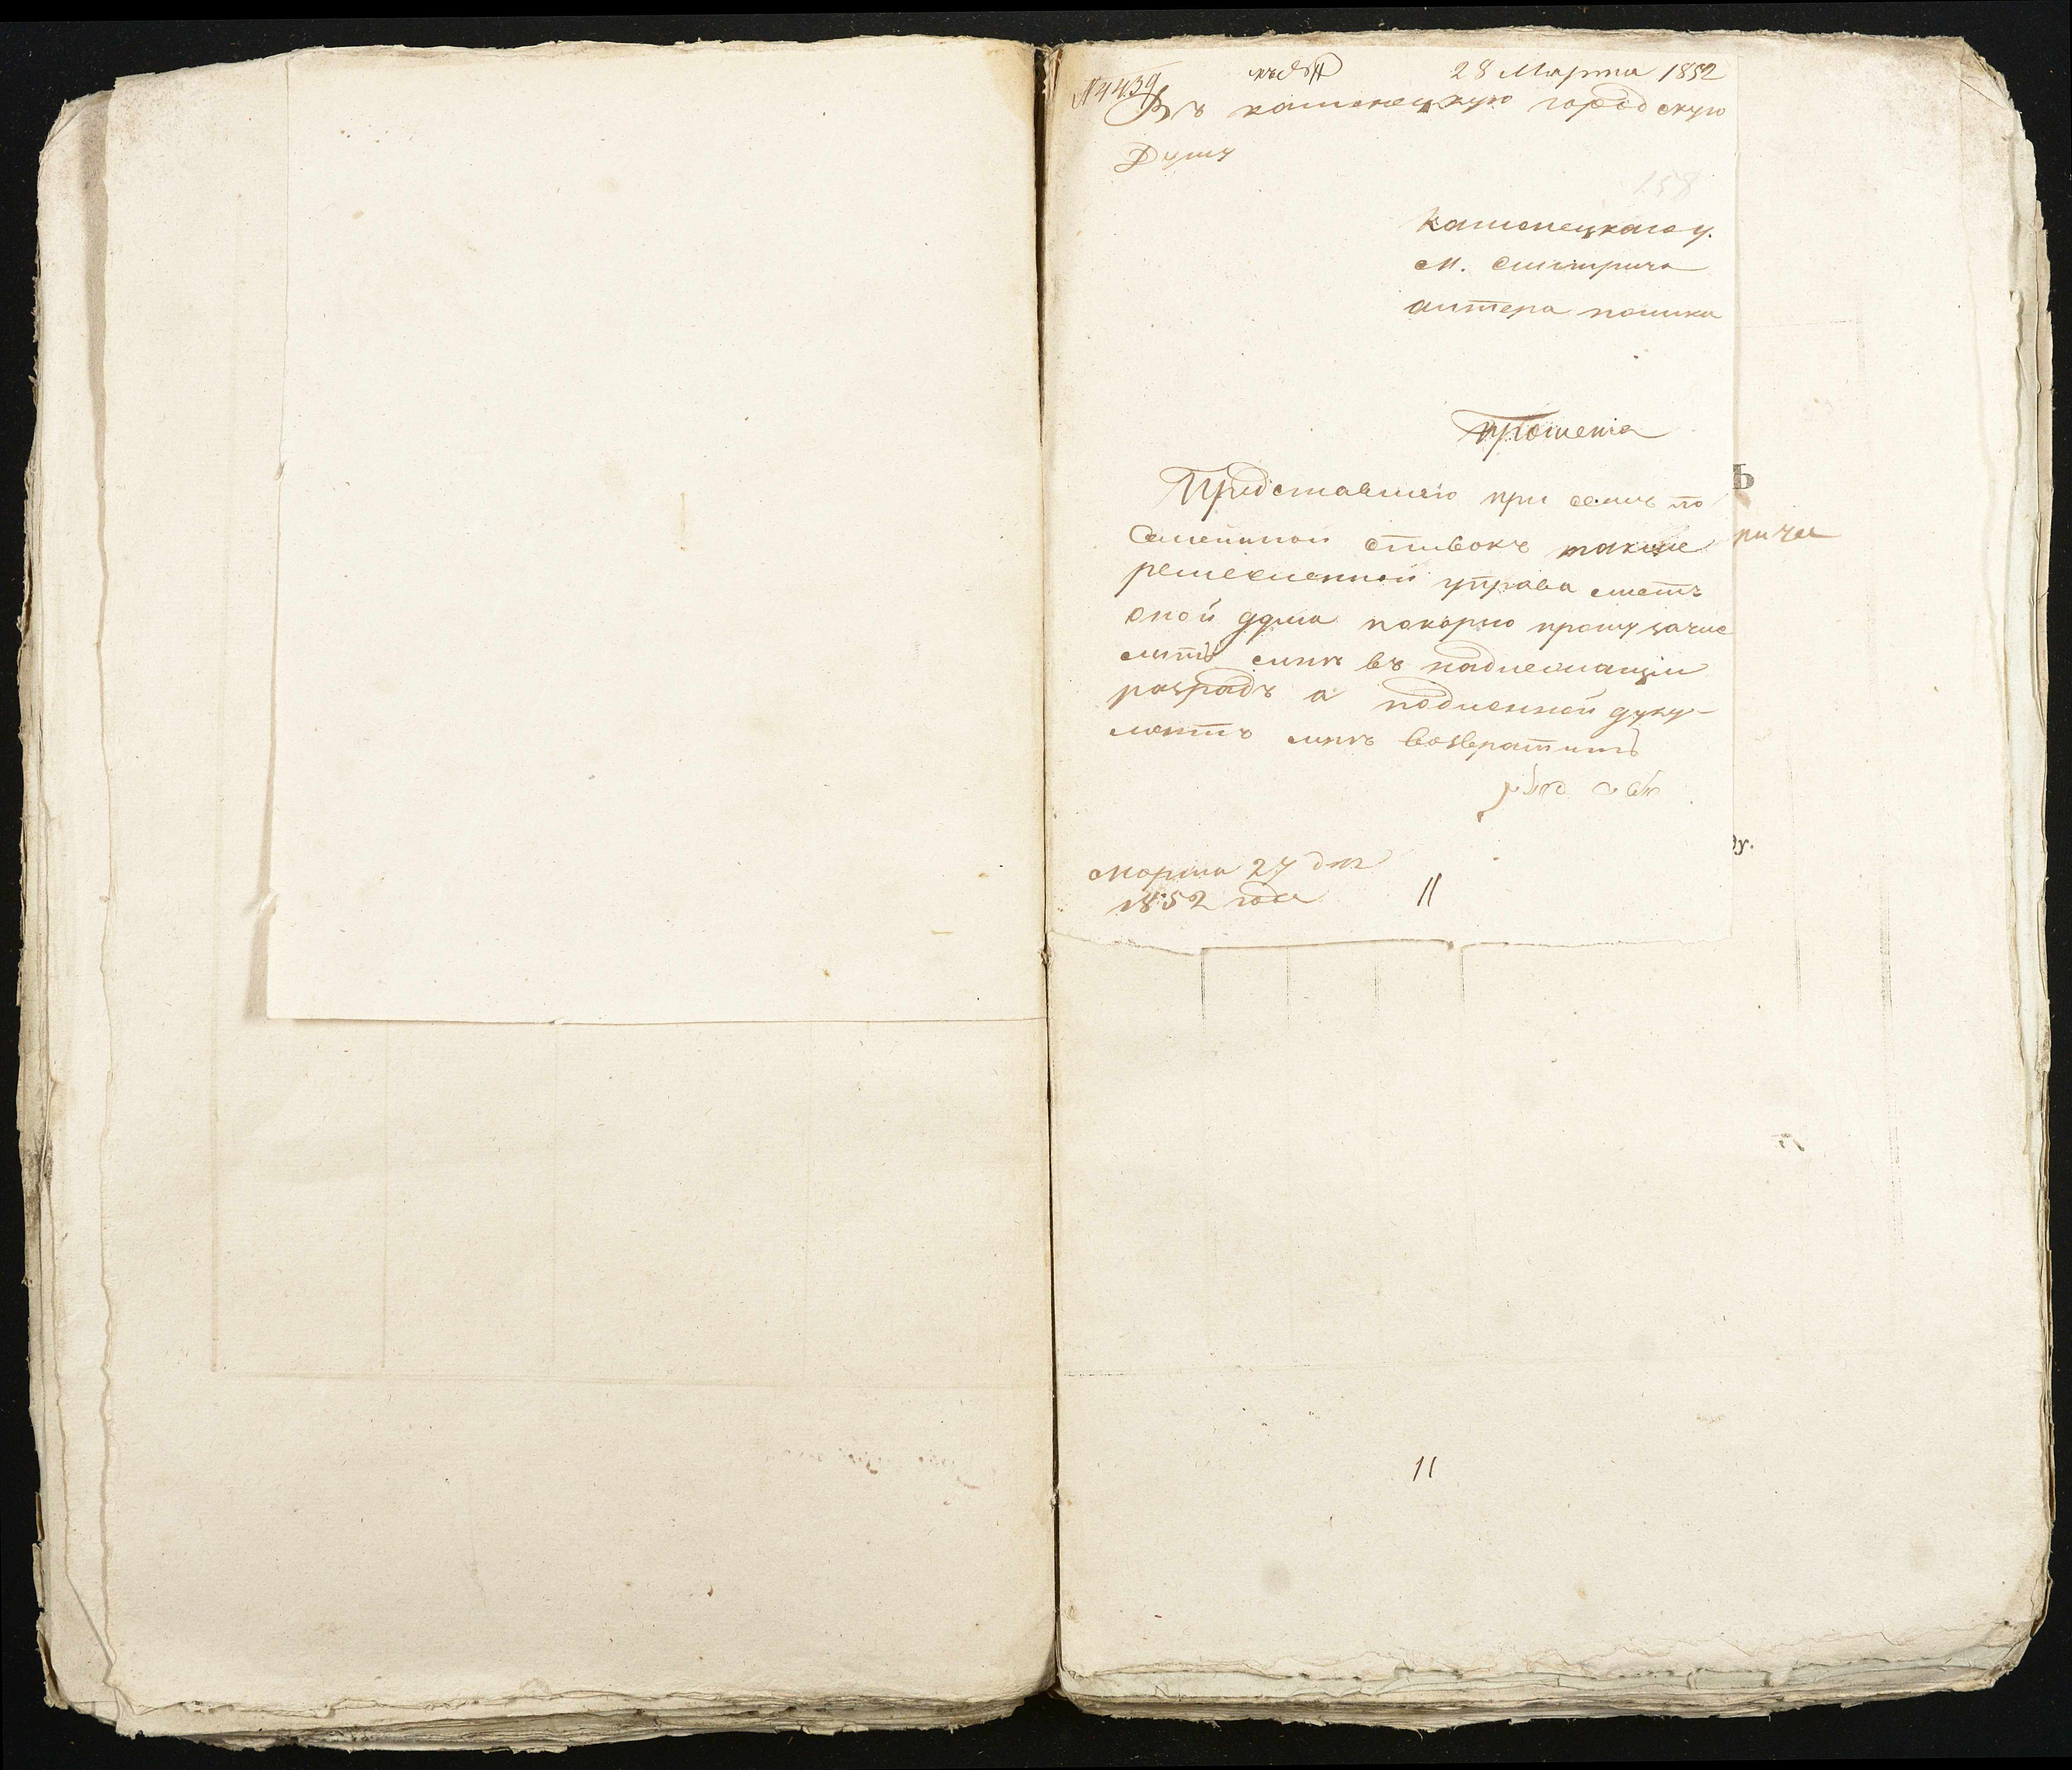 № 4439 28 Марта 1852
Въ каменецкую городскую
Думу
158
Каменецкаго у.
м. Смотрича
Прошенiа
Предсmавляю при семъ по
Семейной списокъ также
ремесленной управа
оной дума покорно прошу зачис
лить въ надлежащiи
разрядъ а подленной доку-
ментъ возвратить
Марта 27 дня
1852 года 11
Ъ
рича
у.
11